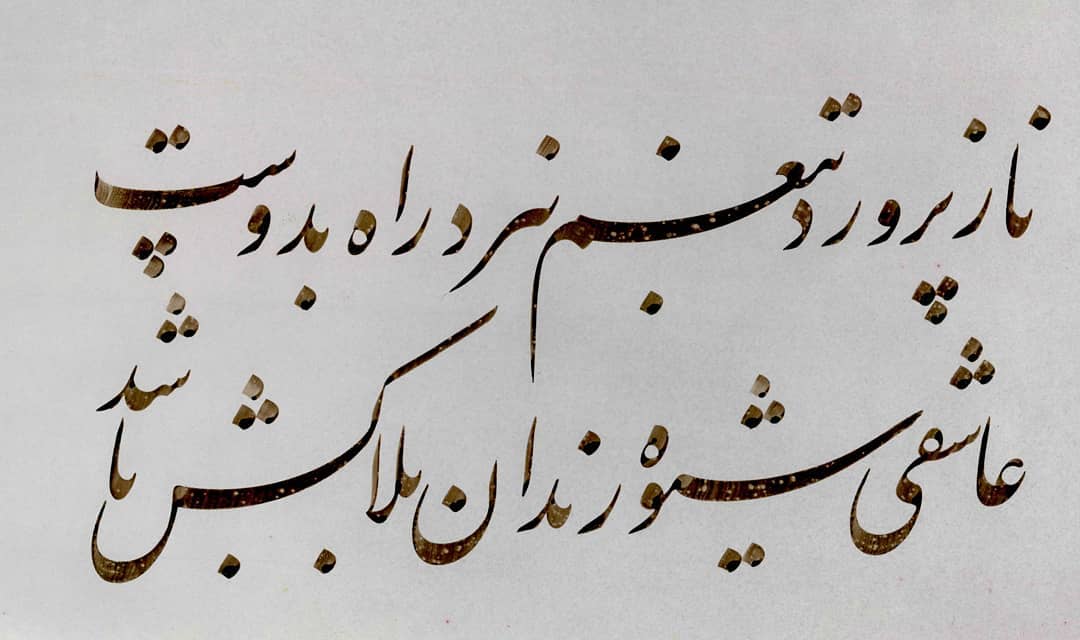 ناز پرورد تنعم نبرد راه بدوست
عاشقی شیوه رندان بلاکش باشد